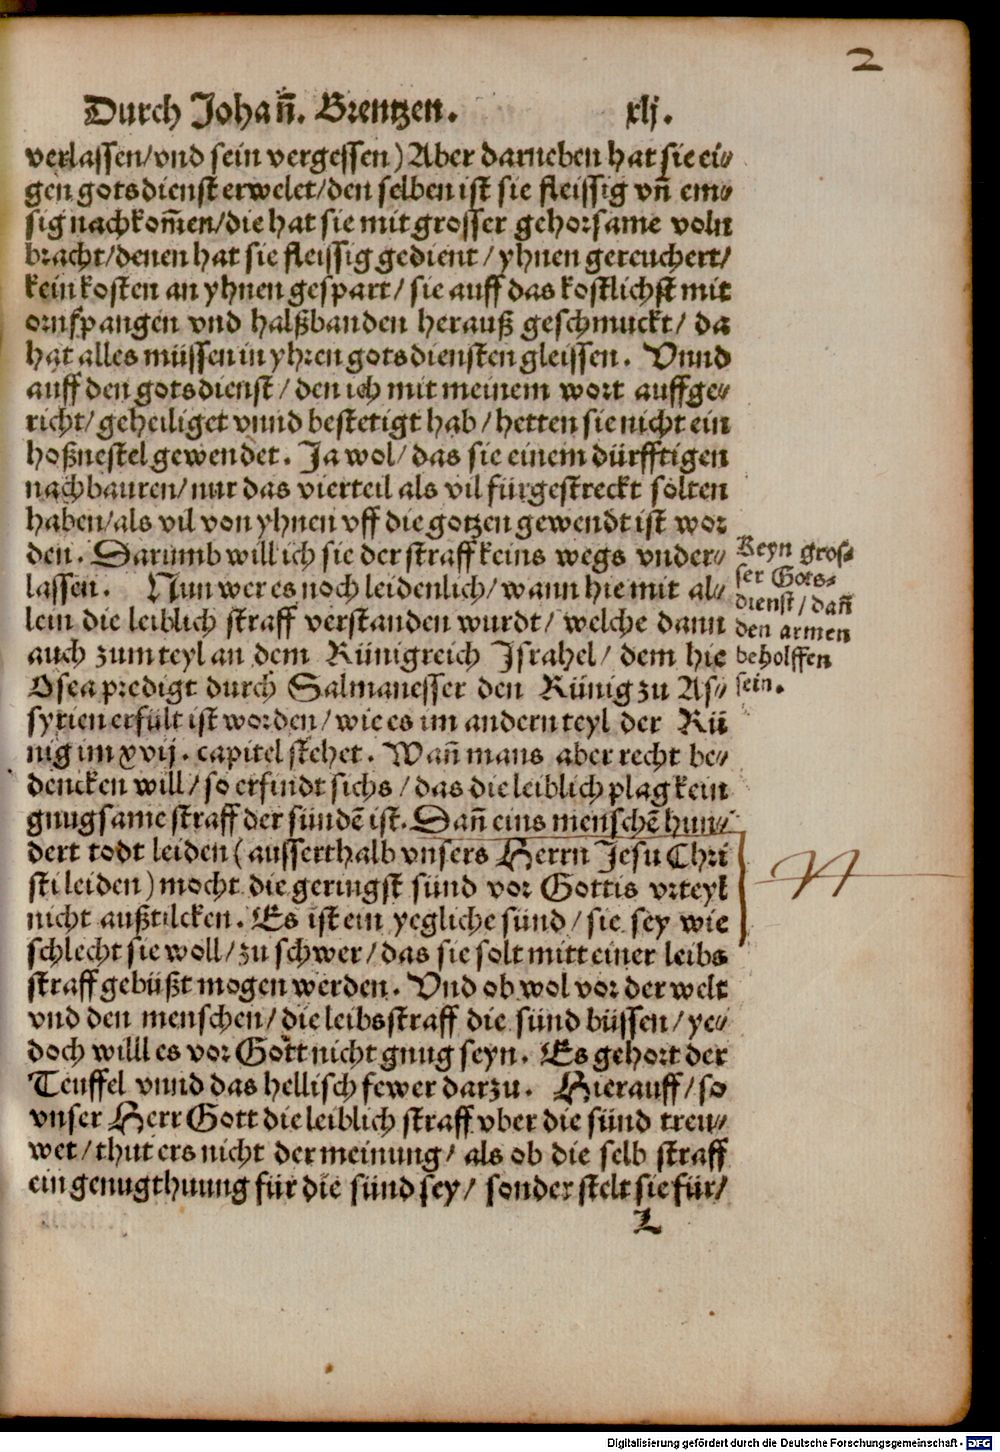 2
Durch Johañ. Brentzen. xlj.
verlassen/vnd sein vergessen) Aber darneben hat sie ei⸗
gen gots dienst erwelet/den selben ist sie fleissig vñ em⸗
sig nachkom̃en/die hat sie mit grosser gehorsame voln
bracht/denen hat sie fleissig gedient/yhnen gereuchert/
kein kosten an yhnen gespart/sie auff das kostlichst mit
ornspangen vnd halßbanden herauß geschmuckt/da
hat alles müssen in yhren gots diensten gleissen. Vnnd
auff den gots dienst/den ich mit meinem wort auffge⸗
richt/geheiliget vnnd bestetigt hab/hetten sie nicht ein
hoßnestel gewendet. Ja wol/das sie einem dürfftigen
nachbauren/nur das vierteil als vil fürgestreckt solten
haben/als vil von yhnen vff die gotzen gewendt ist wor
den. Darumb will ich sie der straff keins wegs vnder⸗
lassen. Nun wer es noch leidenlich/wann hie mit al⸗
lein die leiblich straff verstanden wurdt/welche dann
auch zum teyl an dem Künigreich Israhel/dem hie
Osea predigt durch Salmanesser den Künig zu As⸗
syrien erfült ist worden/wie es im andern teyl der Kü
nig im xvij. capitel stehet. Wañ mans aber recht be⸗
dencken will/so erfindt sichs/das die leiblich plag kein
gnugsame straff der sündẽ ist. Dañ eins menschẽ hun⸗
dert todt leiden (ausserthalb vnsers Herrn Jesu Chri
sti leiden) mocht die geringst sünd vor Gottis vrteyl
nicht außtilcken. Es ist ein yegliche sünd/sie sey wie
schlecht sie woll/zu schwer/das sie solt mitt einer leibs
straff gebüßt mogen werden. Vnd ob wol vor der welt
vnd den menschen/die leibsstraff die sünd büssen/ye⸗
doch willl es vor Gott nicht gnug seyn. Es gehort der
Teuffel vnnd das hellisch fewer darzu. Hierauff/so
vnser Herr Gott die leiblich straff vber die sünd treu⸗
wet/thut ers nicht der meinung/als ob die selb straff
ein genugthuung für die sünd sey/sonder stelt sie für/
L
Keyn gros⸗
ser Gots⸗
dienst/dañ
den armen
beholffen
sein.
Digitalisierung gefördert durch die Deutsche Forschungsgemeinschaft - DFG